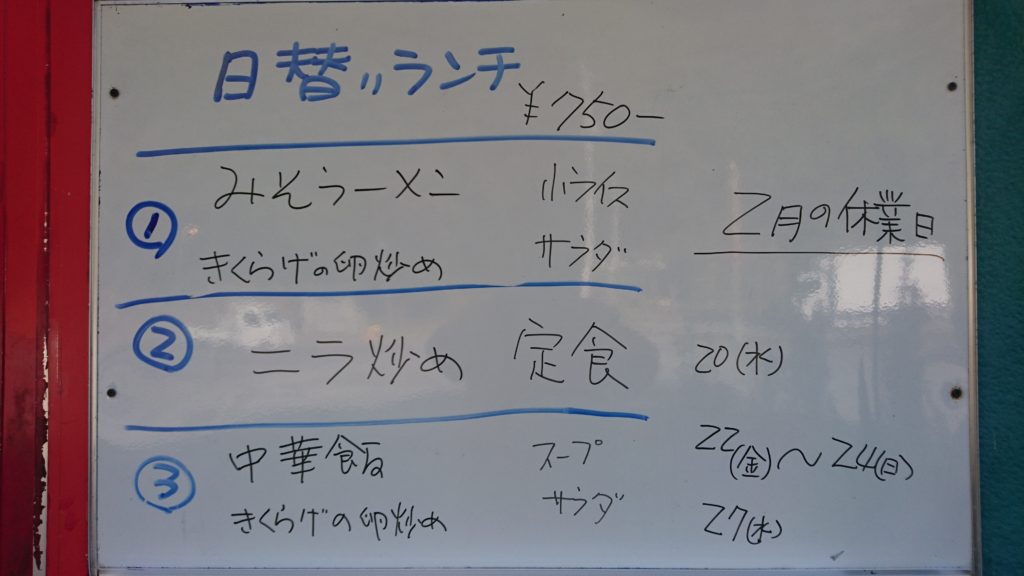 日替りランチ
¥750-
① みそラーメン 小ライス
きくらげの卵炒め サラダ
② ニラ炒め 定食
③ 中華飯 スープ
きくらげの卵炒め サラダ
2月の休業日
20(水)
22(金)〜24(日)
27(水)